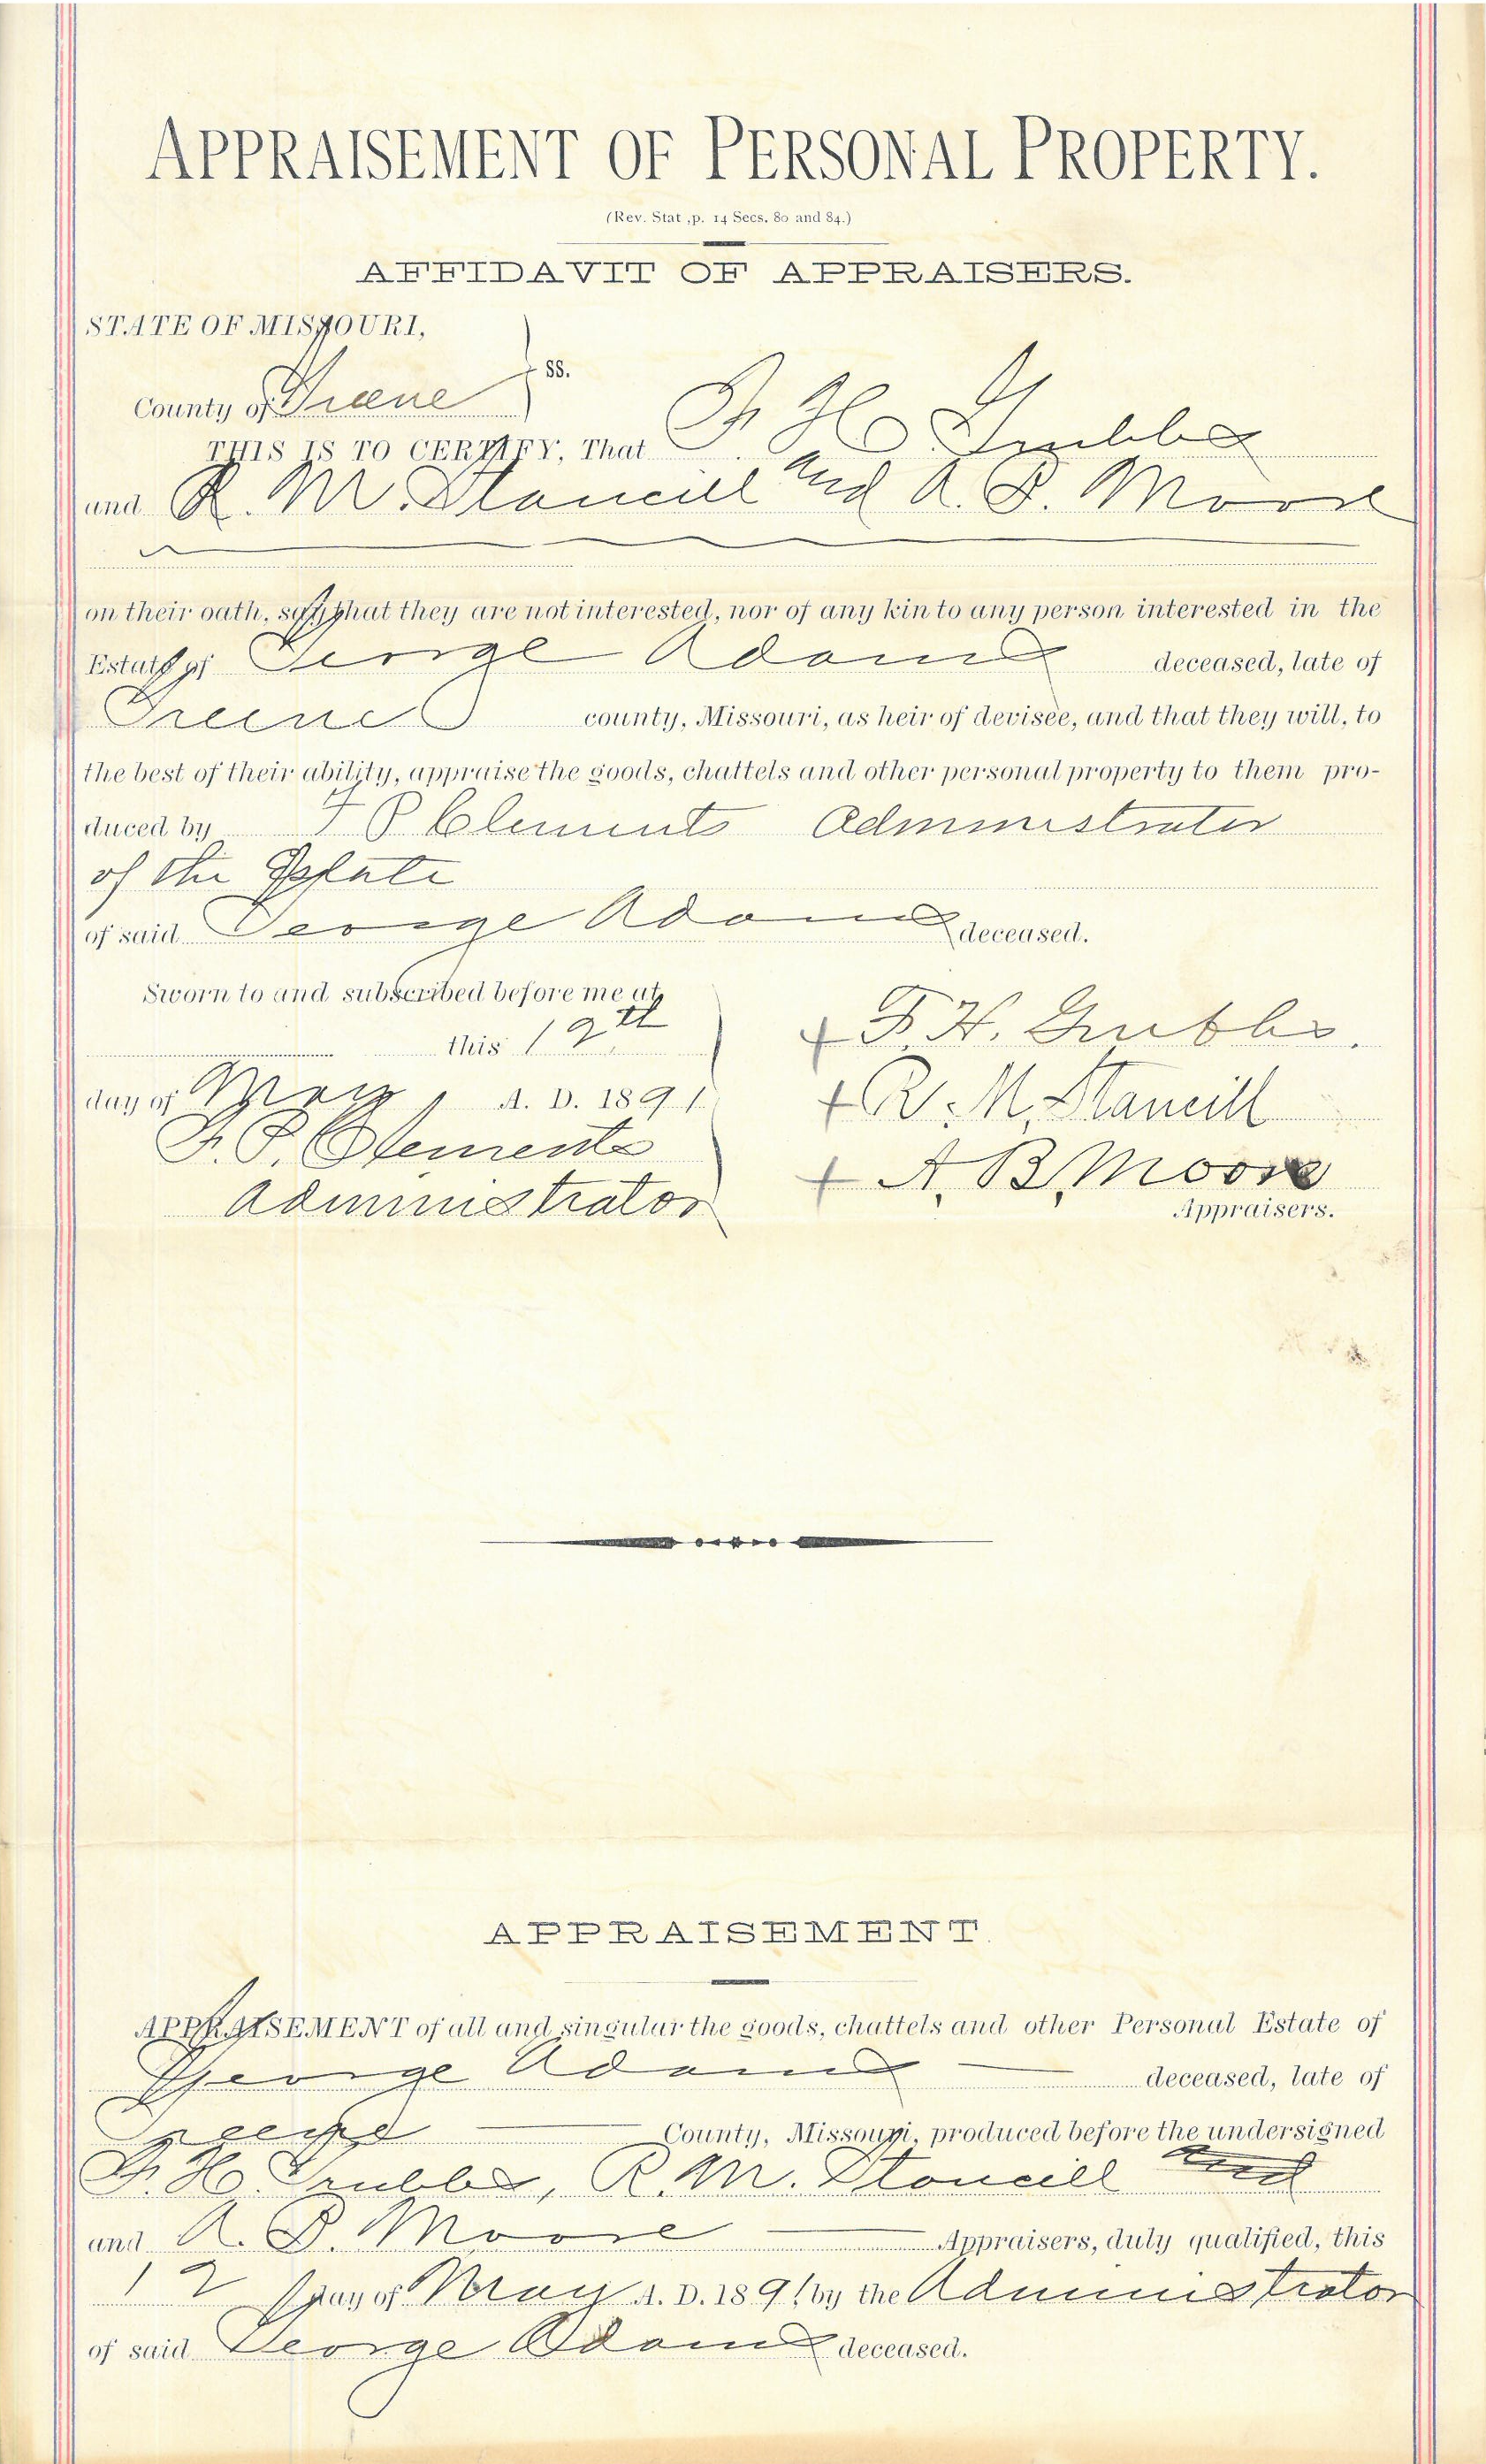 APPRAISEMENT OF PERSONAL PROPERTY.
(Rev. Stat ,p. 14 Secs. 80 and 84.)
AFFIDAVIT OF APPRAISERS.
STATE OF MISSOURI,
ss.
County of Greene
THIS IS TO CERTIFY, That F H Grubbs
and R. M. Stancill and A. B. Moore
on their oath, say that they are not interested, nor of any kin to any person interested in the
Estate of George Adams deceased, late of
Greene county, Missouri, as heir of devisee, and that they will, to
the best of their ability, appraise the goods, chattels and other personal property to them pro-
duced by F P Clements Administrator
of the Estate
of said George Adams deceased.
Sworn to and subscribed before me at
this 12th
day of May A. D. 1891
F. P. Clements
Administrator
+ F. H. Grubbs.
+ R. M. Stancill
+ A. B. Moore
Appraisers.
APPRAISEMENT.
APPRAISEMENT of all and singular the goods, chattels and other Personal Estate of
George Adams deceased, late of
Greene County, Missouri, produced before the undersigned
F. H. Grubbs, R. M. Stancill and
and A. B. Moore Appraisers, duly qualified, this
12 day of May A. D. 1891 by the Administrator
of said George Adams deceased.